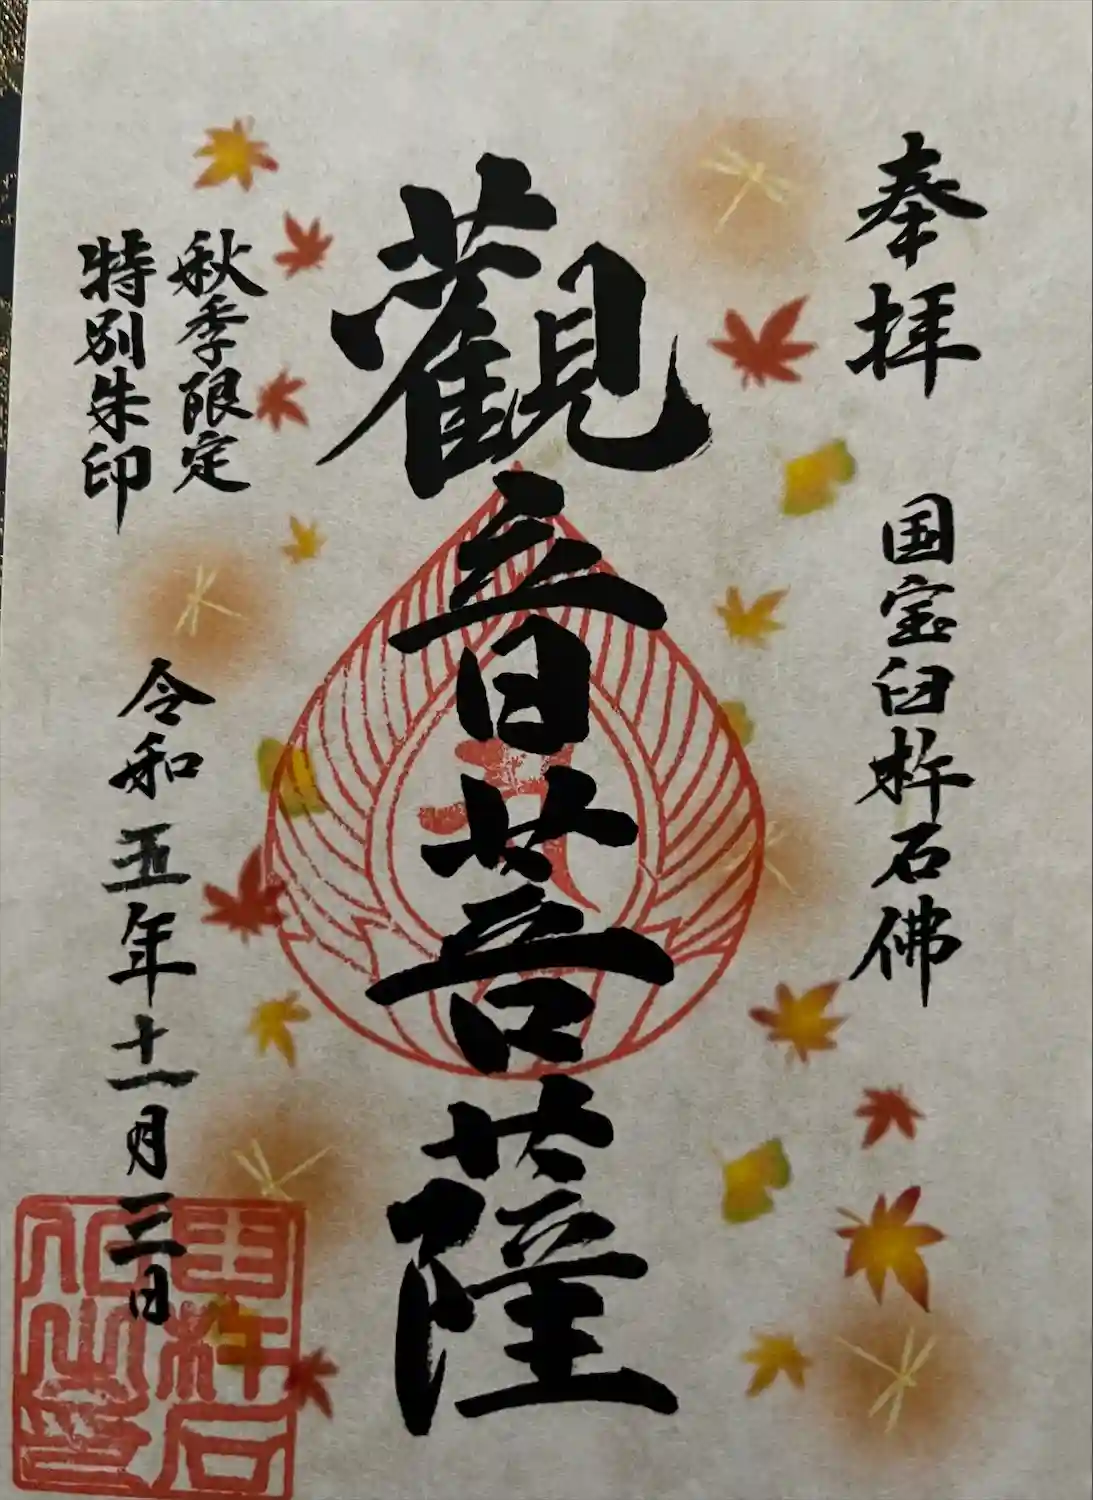 奉拝
国宝臼杵石佛
觀音菩薩
秋季限定
特別朱印
令和五年十一月三日
臼杵石
仏之印